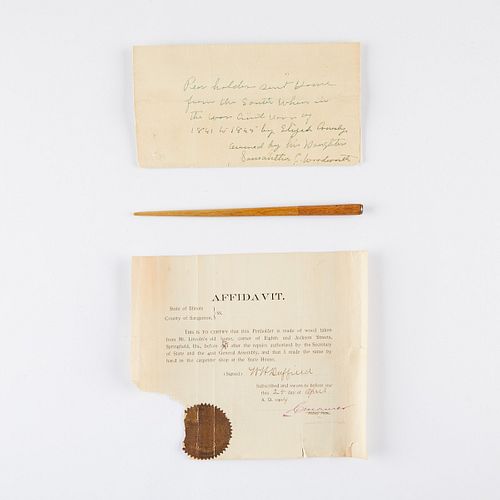 Pen holder sent Home
from the South When in
the war Civil War of
1841 to 1845 by
owned by his Daughter
Samantha C. Woodworth
AFFIDAVIT.
State of Illinois
County of Sangamon, } ss.
THIS IS TO CERTIFY that this Penholder is made of wood taken
from Mr. Lincoln's old home, corner of Eighth and Jackson Streets,
Springfield, Ills., before after the repairs authorized by the Secretary
of State and the General Assembly, and that I made the same by
hand in the carpenter shop at the State House.
(Signed) W H Duffield
Subscribed and sworn to before me
this 28 day of April
A. D.